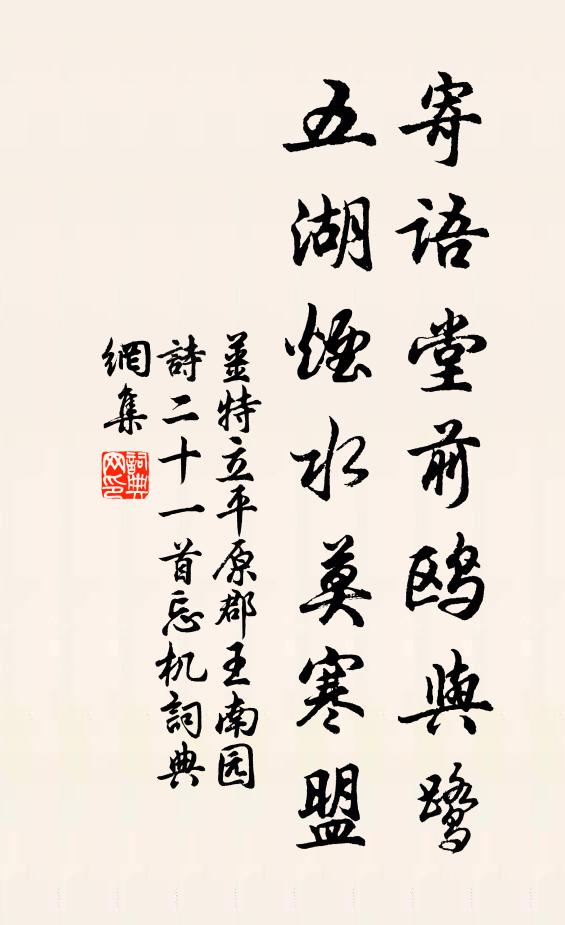 寄语堂前鸥与鹭
五湖烟水莫寒盟
姜特立平原郡王南园
詩二十一首忘机詞典
網集
詞典網印